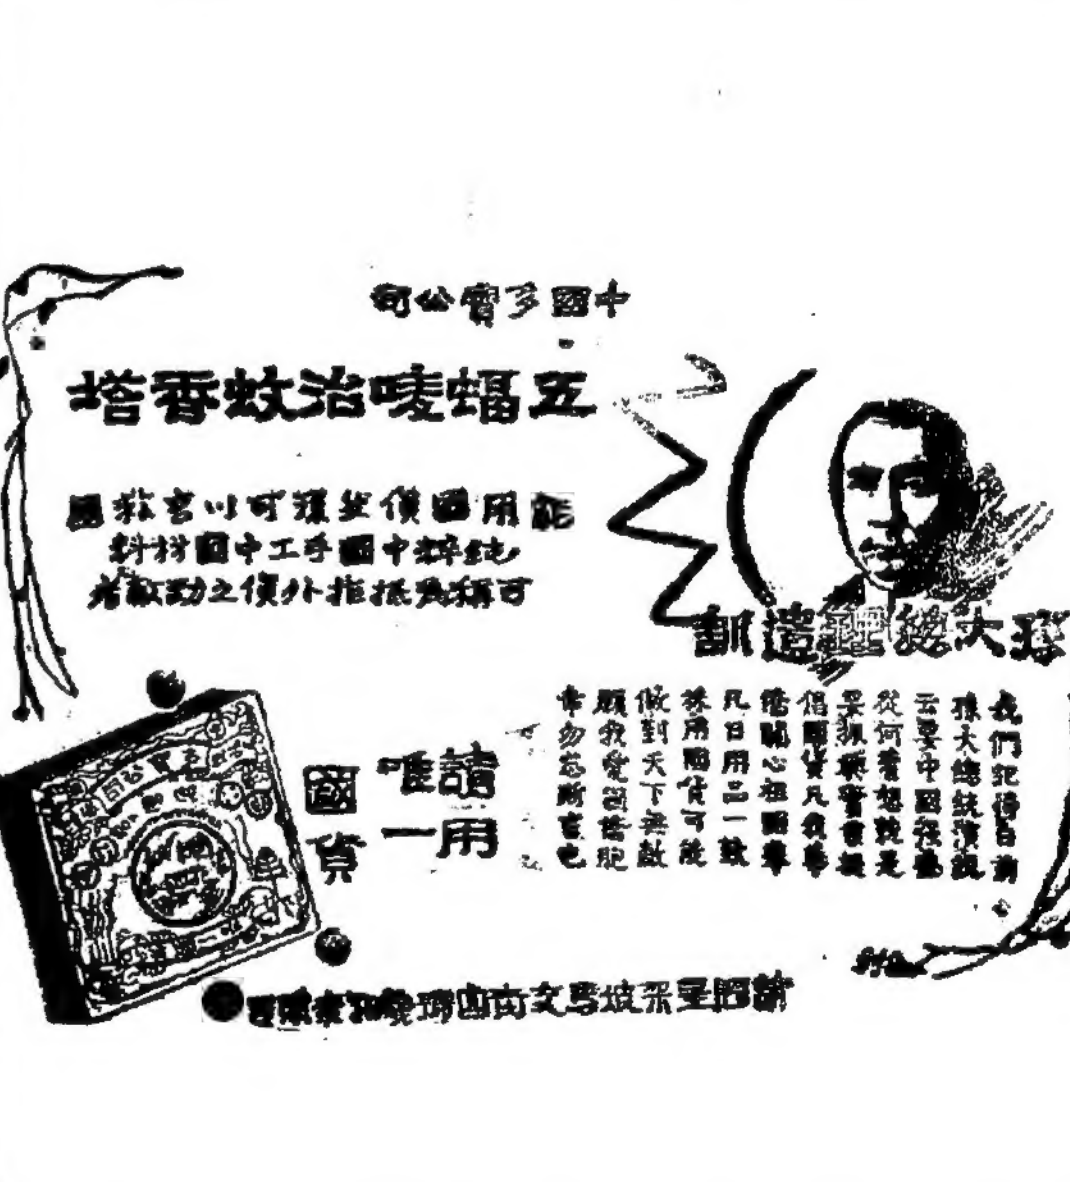 中國多寶公司
五蝠嘜治蚊香塔
能用國貨然後可以言救國
純粹中國手工中國材料
可稱為抵拒外貨之勁敵者
孫大總理遺訓
我們記得自前
孫大總統演說
云要中國強盛
從何着想說是
要振興實業提
倡國貨凡我華
僑關心祖國事
凡日用品一致
採用國貨可能
做對天下無敵
願我愛國僑胞
幸勿忘斯言也
請用
唯一
國貨
多寶公司
星架坡馬交街四